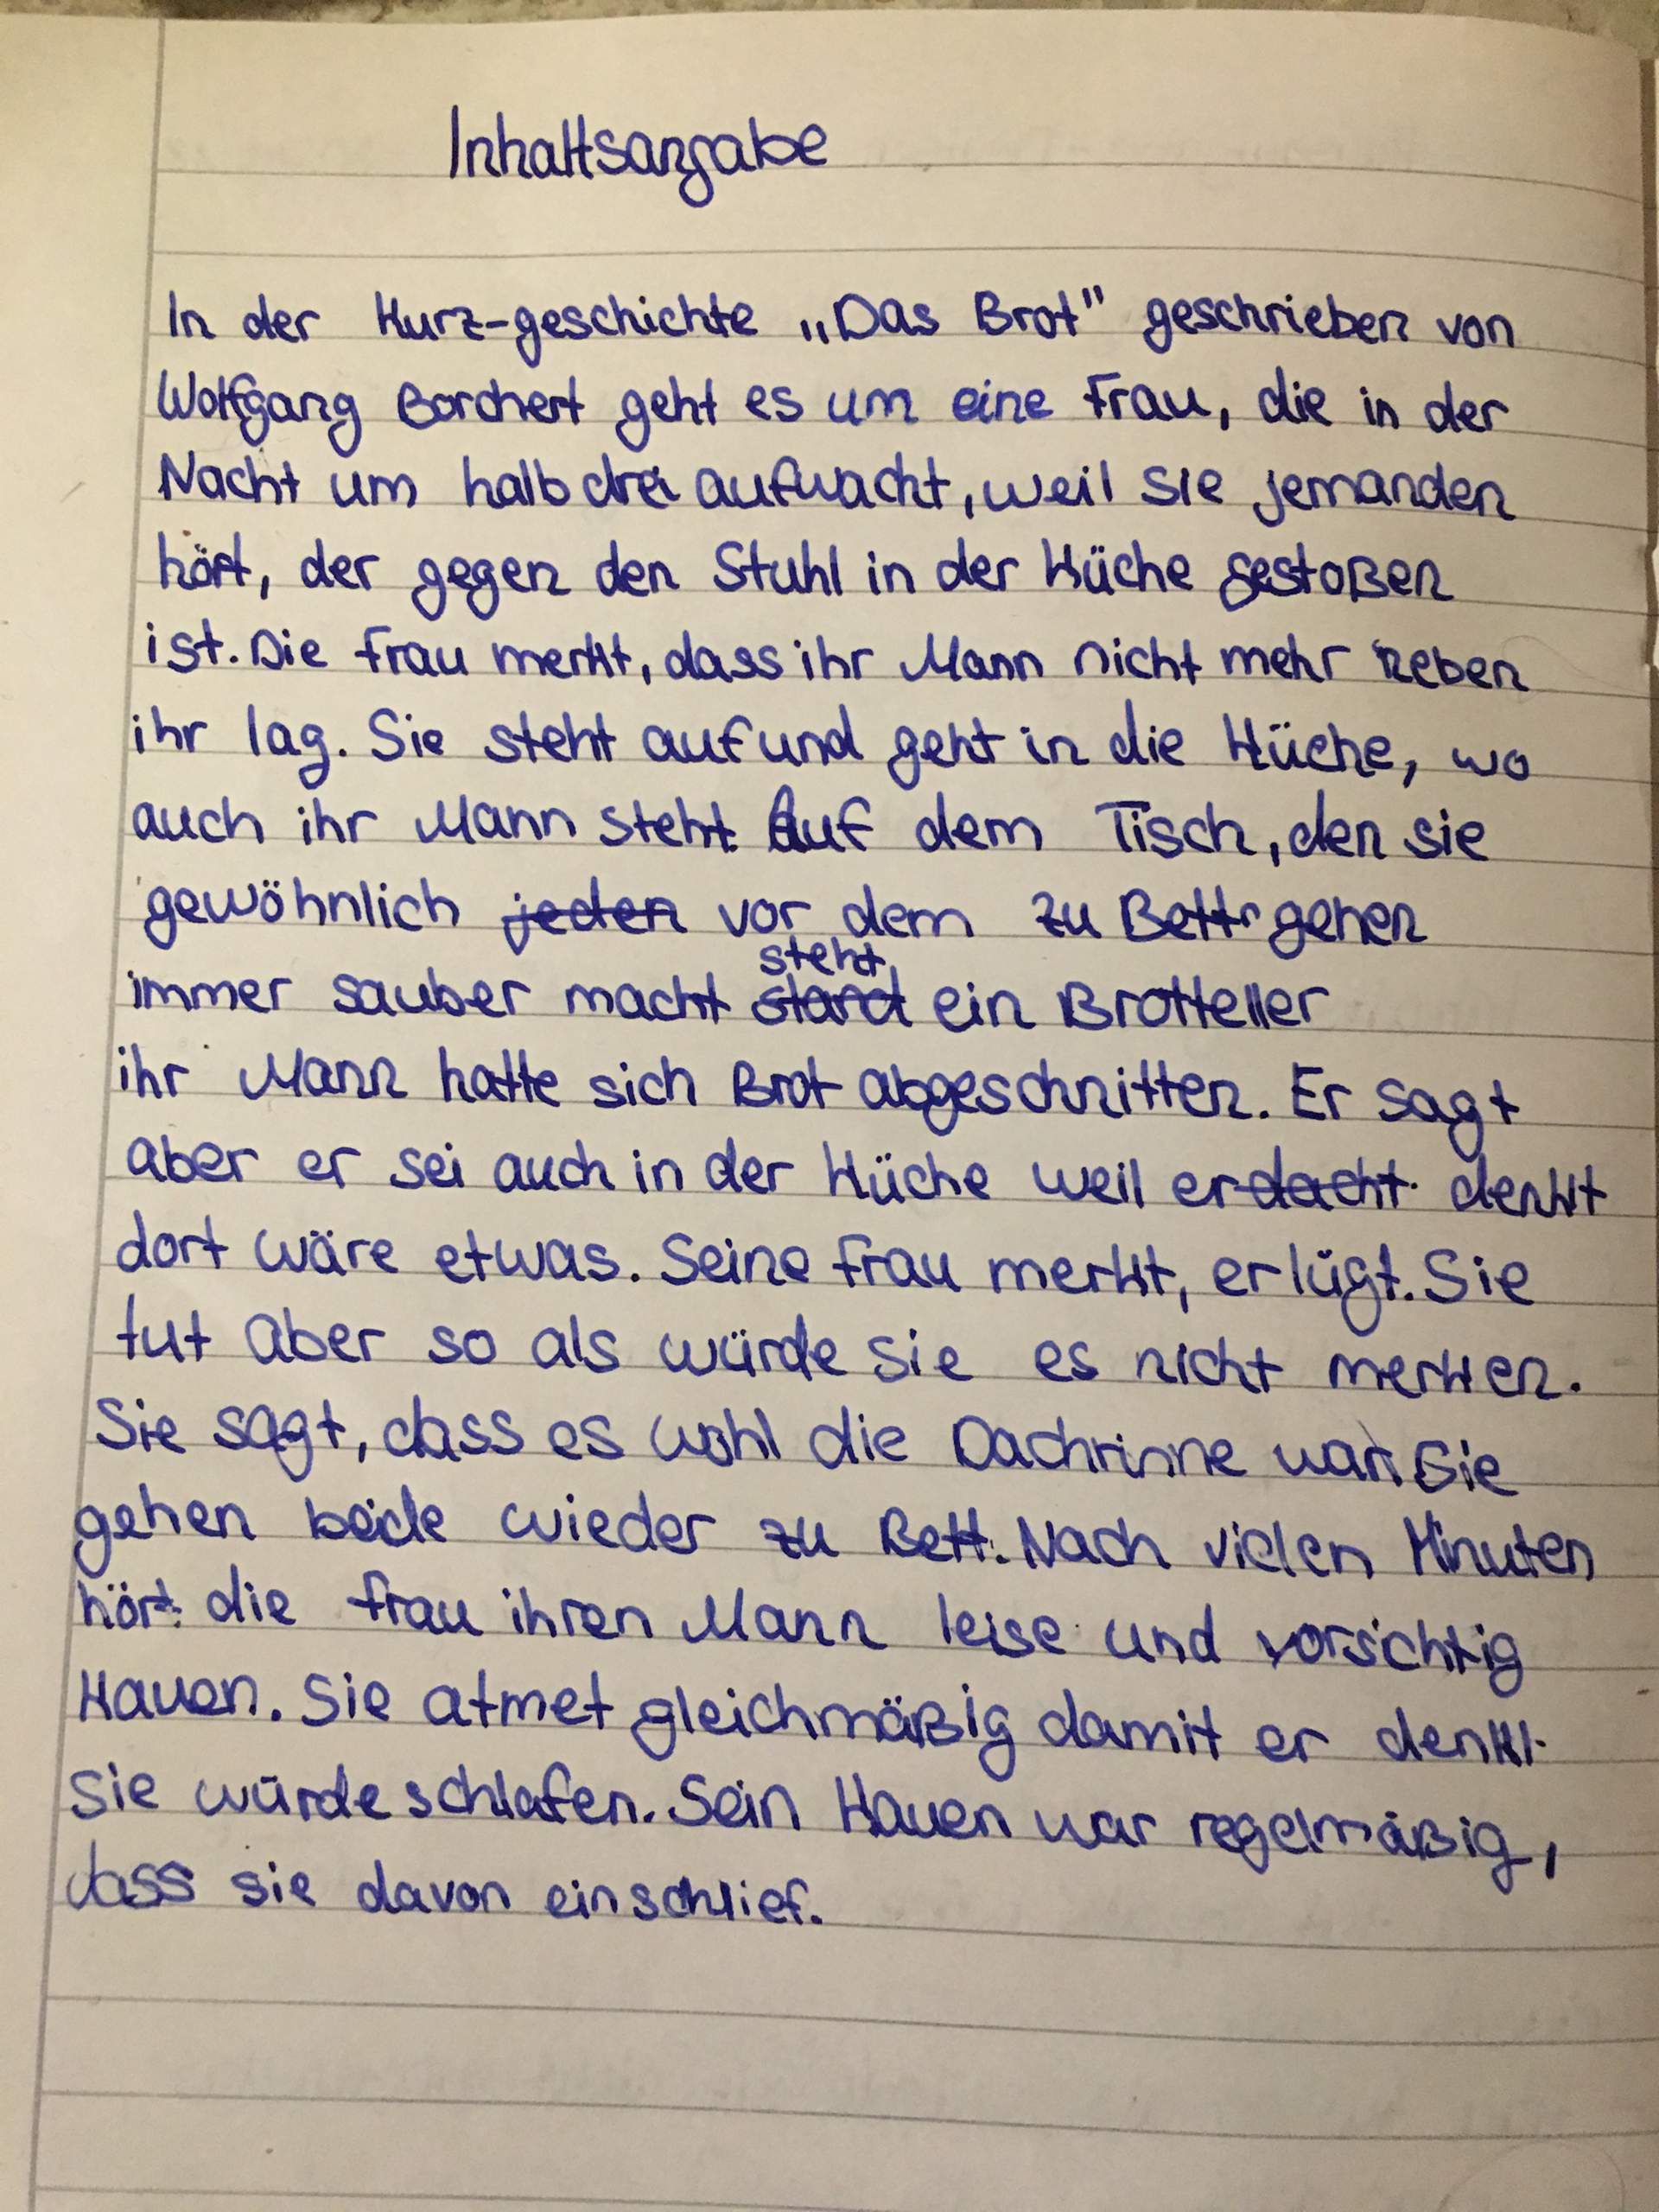 Inhaltsangabe
In der Kurz-geschichte „Das Brot" geschrieben von
Wolfgang Borchert geht es um eine Frau, die in der
Nacht um halb drei aufwacht, weil sie jemanden
hört, der gegen den Stuhl in der Küche gestoßen
ist. Die Frau merkt, dass ihr Mann nicht mehr neben
ihr lag. Sie steht auf und geht in die Küche, wo
auch ihr Mann steht. Auf dem Tisch, den sie
gewöhnlich jeden vor dem zu Bett gehen
steht
immer sauber macht stand ein Brotteller
ihr Mann hatte sich Brot abgeschnitten. Er sagt
aber er sei auch in der Küche weil er dacht denkt
dort wäre etwas. Seine Frau merkt, er lügt. Sie
tut aber so als würde sie es nicht merken.
Sie sagt, dass es wohl die Dachrinne war. Sie
gehen beide wieder zu Bett. Nach vielen Minuten
hört die Frau ihren Mann leise und vorsichtig
Kauen. Sie atmet gleichmäßig damit er denkt
sie würde schlafen. Sein Kauen war regelmäßig,
dass sie davon einschlief.